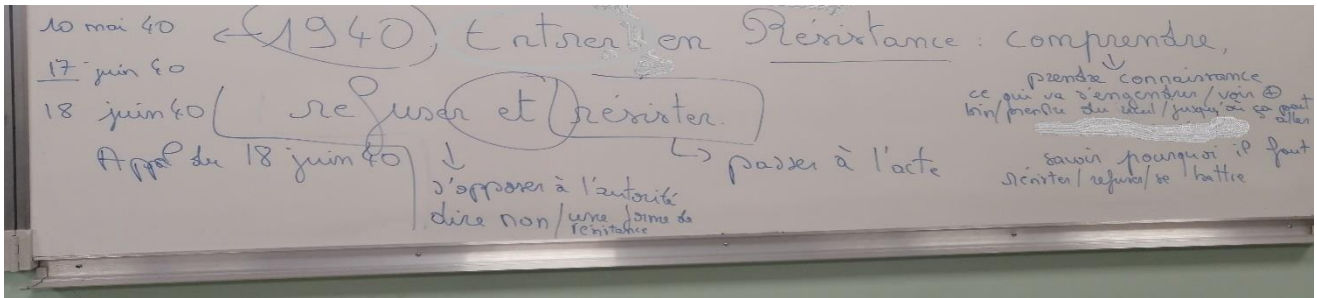 10 mai 40
17 juin 40
18 juin 40
Appel du 18 juin 40
← 1940, Entrer en Résistance : comprendre,
refuser et résister.
↓
s'opposer à l'autorité
dire non / une forme de
résistance
↳ passer à l'acte
↓
prendre connaissance
ce qui va s'engendrer / voir ⊕
loin / prendre du recul / jusqu'où ça peut
aller
savoir pourquoi il faut
résister / refuser / se battre